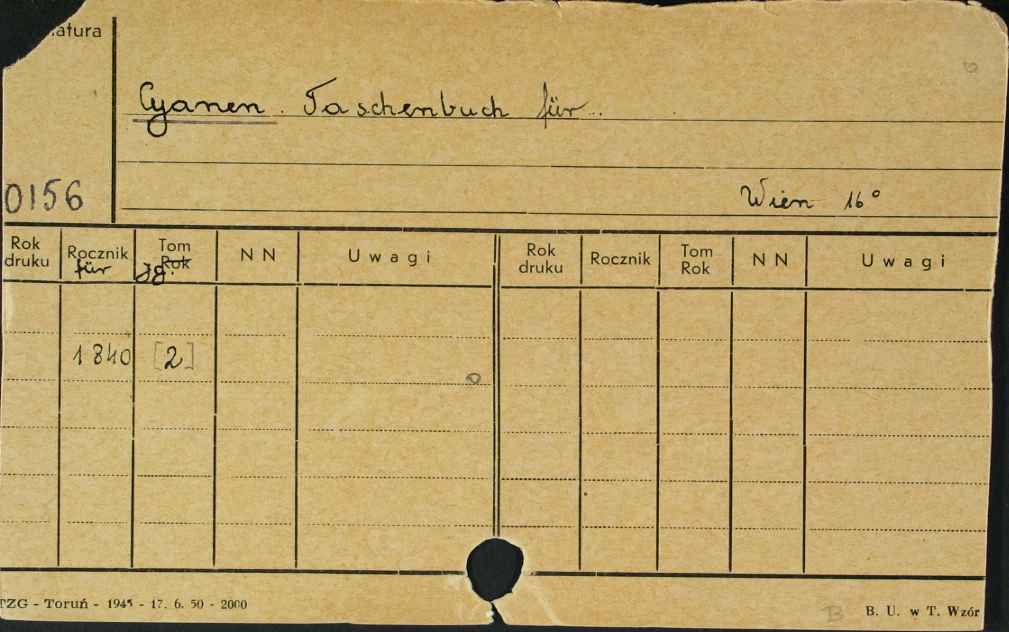 atura
Cyanen. Taschenbuch für...
0156
Wien 16°
Rok druku Rocznik für Tom Rok Jg. NN Uwagi Rok druku Rocznik Tom Rok NN Uwagi
1840 [2]
TZG - Toruń - 1945 - 17. 6. 50 - 2000
B. U. w T. Wzór